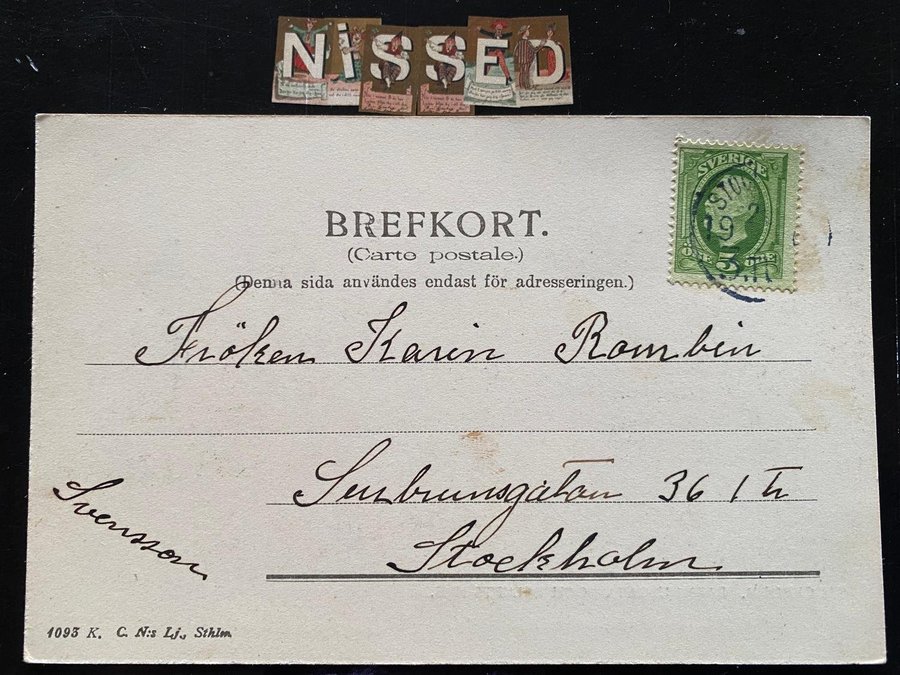 NiSSED
SVERIGE
STOC
19 2
ÖRE 5 ÖRE
BREFKORT.
(Carte postale.)
(Denna sida användes endast för adresseringen.)
Fröken Karin Rombin
36 1 tr
Stockholm
Svensson
1093 K. C. N:s Lj., Sthlm.